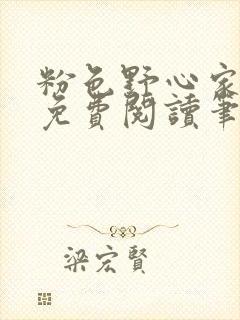 粉色野心家
免費閱讀筆
梁宏賢